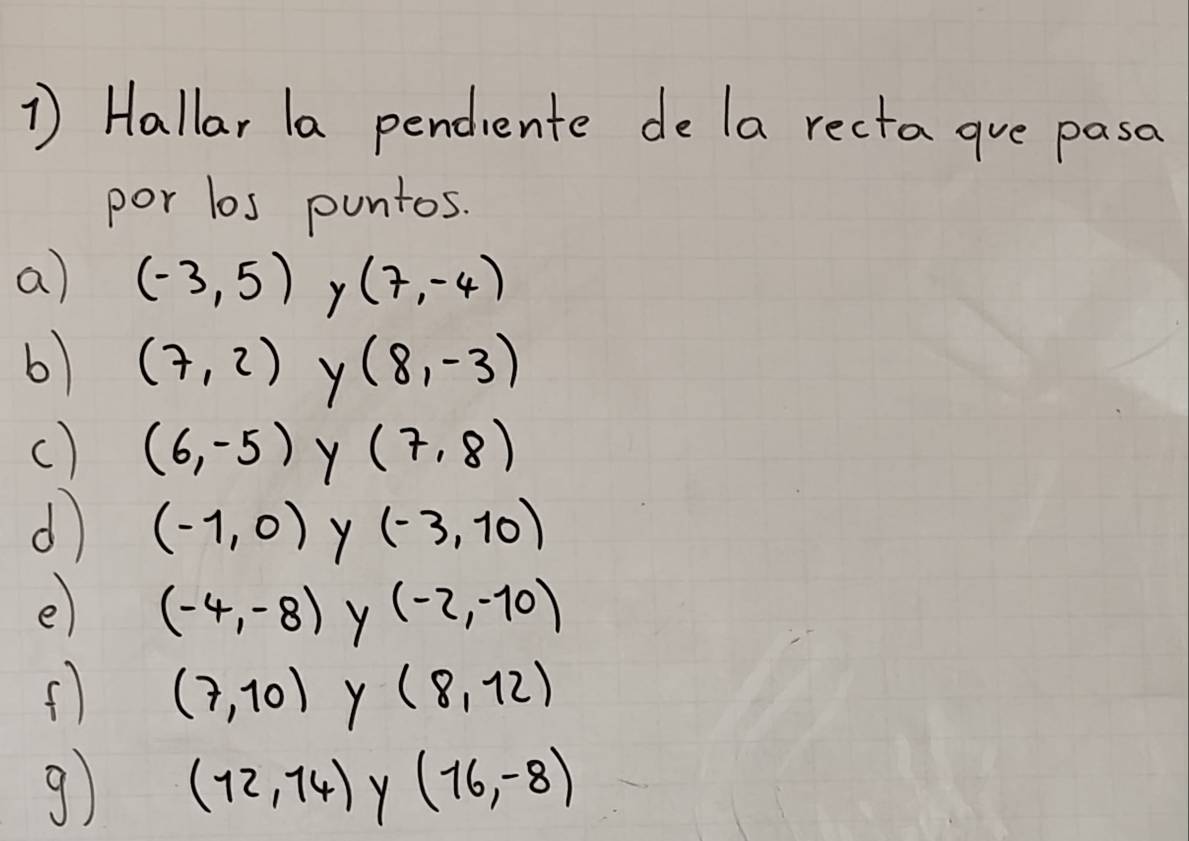 1) Hallar la pendiente de la recta que pasa
por los puntos.
a) (-3,5) y (7,-4)
b) (7,2) y (8,-3)
c) (6,-5) y (7,8)
d) (-1,0) y (-3,10)
e) (-4,-8) y (-2,-10)
f) (7,10) y (8,12)
g) (12,14) y (16,-8)